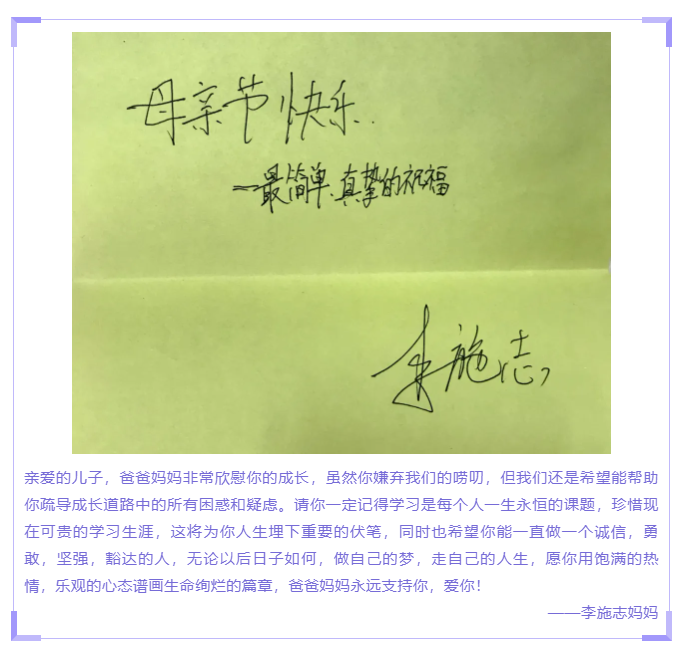 母亲节快乐..
——最简单、真挚的祝福
李施志
亲爱的儿子，爸爸妈妈非常欣慰你的成长，虽然你嫌弃我们的唠叨，但我们还是希望能帮助
你疏导成长道路中的所有困惑和疑虑。请你一定记得学习是每个人一生永恒的课题，珍惜现
在可贵的学习生涯，这将为你人生埋下重要的伏笔，同时也希望你能一直做一个诚信，勇
敢，坚强，豁达的人，无论以后日子如何，做自己的梦，走自己的人生，愿你用饱满的热
情，乐观的心态谱画生命绚烂的篇章，爸爸妈妈永远支持你，爱你！
——李施志妈妈